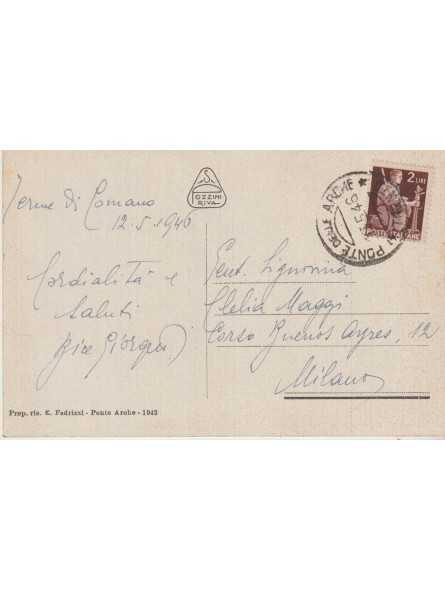 Terme di Comano
12.5.1946
Cordialità e
saluti
Bice Giorgi
S
POZZINI
RIVA
2 LIRE
POSTE ITALIANE
PONTE DELLE ARCHE
Gent. Signorina
Clelia Maggi
Corso Buenos Ayres, 12
Milano
Prop. ris. E. Fedrizzi - Ponte Arche - 1942